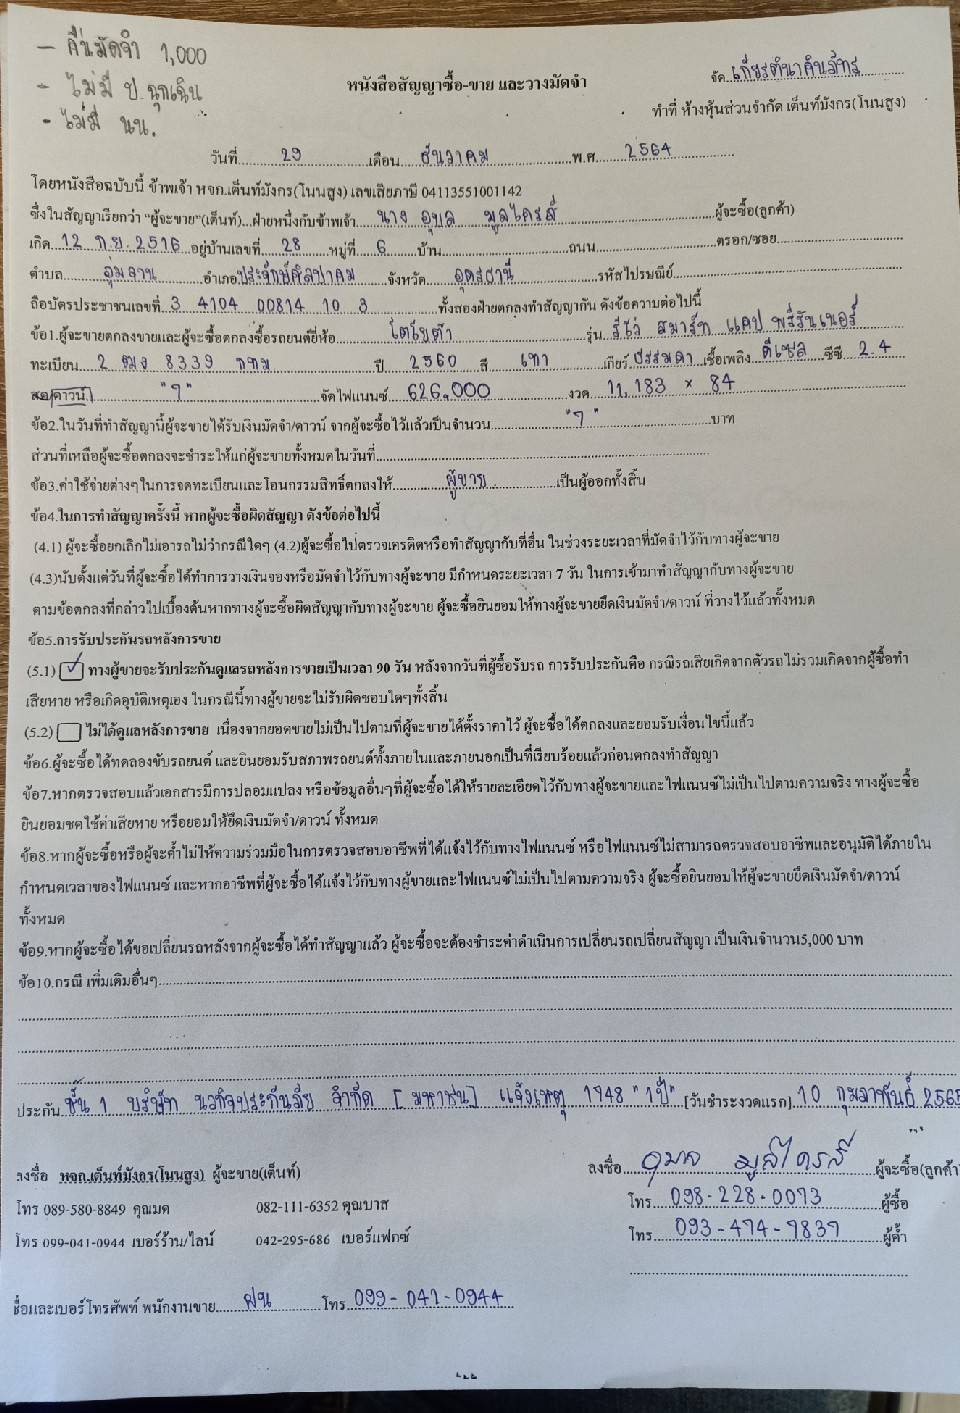 - คืนมัดจำ 1,000
- ไม่มี ป.ฉุกเฉิน
- ไม่มี นน.
หนังสือสัญญาซื้อ-ขาย และวางมัดจำ
จัด เกียรตินาคินภัทร
ทำที่ ห้างหุ้นส่วนจำกัด เต็นท์มังกร(โนนสูง)
วันที่ 29 เดือน ธันวาคม พ.ศ. 2564
โดยหนังสือฉบับนี้ ข้าพเจ้า หจก.เต็นท์มังกร(โนนสูง) เลขเสียภาษี 04113551001142
ซึ่งในสัญญาเรียกว่า "ผู้จะขาย"(เต็นท์)...ฝ่ายหนึ่งกับข้าพเจ้า นาง อุบล มูลไครส์ ผู้จะซื้อ(ลูกค้า)
เกิด 12 ก.ย. 2516 อยู่บ้านเลขที่ 28 หมู่ที่ 6 บ้าน ถนน ตรอก/ซอย
ตำบล อุ่มจาน อำเภอ ประจักษ์ศิลปาคม จังหวัด อุดรธานี รหัสไปรษณีย์
ถือบัตรประชาชนเลขที่ 3 4104 00814 10 3 ทั้งสองฝ่ายตกลงทำสัญญากัน ดังข้อความต่อไปนี้
ข้อ1.ผู้จะขายตกลงขายและผู้จะซื้อตกลงซื้อรถยนต์ยี่ห้อ โตโยต้า รุ่น รีโว่ สมาร์ท แคป พรีรันเนอร์
ทะเบียน 2 ฒง 8339 กทม ปี 2560 สี เทา เกียร์ ธรรมดา เชื้อเพลิง ดีเซล ซีซี 2.4
สด/ดาวน์ "7" จัดไฟแนนซ์ 626,000 งวด 11,183 x 84
ข้อ2.ในวันที่ทำสัญญานี้ผู้จะขายได้รับเงินมัดจำ/ดาวน์ จากผู้จะซื้อไว้แล้วเป็นจำนวน "7" บาท
ส่วนที่เหลือผู้จะซื้อตกลงจะชำระให้แก่ผู้จะขายทั้งหมดในวันที่
ข้อ3.ค่าใช้จ่ายต่างๆในการจดทะเบียนและโอนกรรมสิทธิ์ตกลงให้ ผู้ขาย เป็นผู้ออกทั้งสิ้น
ข้อ4.ในการทำสัญญาครั้งนี้ หากผู้จะซื้อผิดสัญญา ดังข้อต่อไปนี้
(4.1) ผู้จะซื้อยกเลิกไม่เอารถไม่ว่ากรณีใดๆ (4.2)ผู้จะซื้อไปตรวจเครดิตหรือทำสัญญากับที่อื่น ในช่วงระยะเวลาที่มัดจำไว้กับทางผู้จะขาย
(4.3)นับตั้งแต่วันที่ผู้จะซื้อได้ทำการวางเงินจองหรือมัดจำไว้กับทางผู้จะขาย มีกำหนดระยะเวลา 7 วัน ในการเข้ามาทำสัญญากับทางผู้จะขาย
ตามข้อตกลงที่กล่าวไปเบื้องต้นหากทางผู้จะซื้อผิดสัญญากับทางผู้จะขาย ผู้จะซื้อยินยอมให้ทางผู้จะขายยึดเงินมัดจำ/ดาวน์ ที่วางไว้แล้วทั้งหมด
ข้อ5.การรับประกันรถหลังการขาย
(5.1) ✓ ทางผู้ขายจะรับประกันดูแลรถหลังการขายเป็นเวลา 90 วัน หลังจากวันที่ผู้ซื้อรับรถ การรับประกันคือ กรณีรถเสียเกิดจากตัวรถไม่รวมเกิดจากผู้ซื้อทำ
เสียหาย หรือเกิดอุบัติเหตุเอง ในกรณีนี้ทางผู้ขายจะไม่รับผิดชอบใดๆทั้งสิ้น
(5.2) ไม่ได้ดูแลหลังการขาย เนื่องจากยอดขายไม่เป็นไปตามที่ผู้จะขายได้ตั้งราคาไว้ ผู้จะซื้อได้ตกลงและยอมรับเงื่อนไขนี้แล้ว
ข้อ6.ผู้จะซื้อได้ทดลองขับรถยนต์ และยินยอมรับสภาพรถยนต์ทั้งภายในและภายนอกเป็นที่เรียบร้อยแล้วก่อนตกลงทำสัญญา
ข้อ7.หากตรวจสอบแล้วเอกสารมีการปลอมแปลง หรือข้อมูลอื่นๆที่ผู้จะซื้อได้ให้รายละเอียดไว้กับทางผู้จะขายและไฟแนนซ์ไม่เป็นไปตามความจริง ทางผู้จะซื้อ
ยินยอมชดใช้ค่าเสียหาย หรือยอมให้ยึดเงินมัดจำ/ดาวน์ ทั้งหมด
ข้อ8.หากผู้จะซื้อหรือผู้จะค้ำไม่ให้ความร่วมมือในการตรวจสอบอาชีพที่ได้แจ้งไว้กับทางไฟแนนซ์ หรือไฟแนนซ์ไม่สามารถตรวจสอบอาชีพและอนุมัติได้ภายใน
กำหนดเวลาของไฟแนนซ์ และหากอาชีพที่ผู้จะซื้อได้แจ้งไว้กับทางผู้ขายและไฟแนนซ์ไม่เป็นไปตามความจริง ผู้จะซื้อยินยอมให้ผู้จะขายยึดเงินมัดจำ/ดาวน์
ทั้งหมด
ข้อ9.หากผู้จะซื้อได้ขอเปลี่ยนรถหลังจากผู้จะซื้อได้ทำสัญญาแล้ว ผู้จะซื้อจะต้องชำระค่าดำเนินการเปลี่ยนรถเปลี่ยนสัญญา เป็นเงินจำนวน5,000 บาท
ข้อ10.กรณี เพิ่มเติมอื่นๆ
ประกัน ชั้น 1 บริษัท นวกิจประกันภัย จำกัด [ มหาชน ] แจ้งเหตุ 1748 "1ปี" [วันชำระงวดแรก] 10 กุมภาพันธ์ 2565
ลงชื่อ หจก.เต็นท์มังกร(โนนสูง) ผู้จะขาย(เต็นท์) ลงชื่อ อุบล มูลไครส์ ผู้จะซื้อ(ลูกค้า)
โทร 089-580-8849 คุณมด 082-111-6352 คุณบาส โทร 098-228-0073 ผู้ซื้อ
โทร 099-041-0944 เบอร์ร้าน/ไลน์ 042-295-686 เบอร์แฟกซ์ โทร 093-474-9839 ผู้ค้ำ
ชื่อและเบอร์โทรศัพท์ พนักงานขาย ฝน โทร 099-041-0944